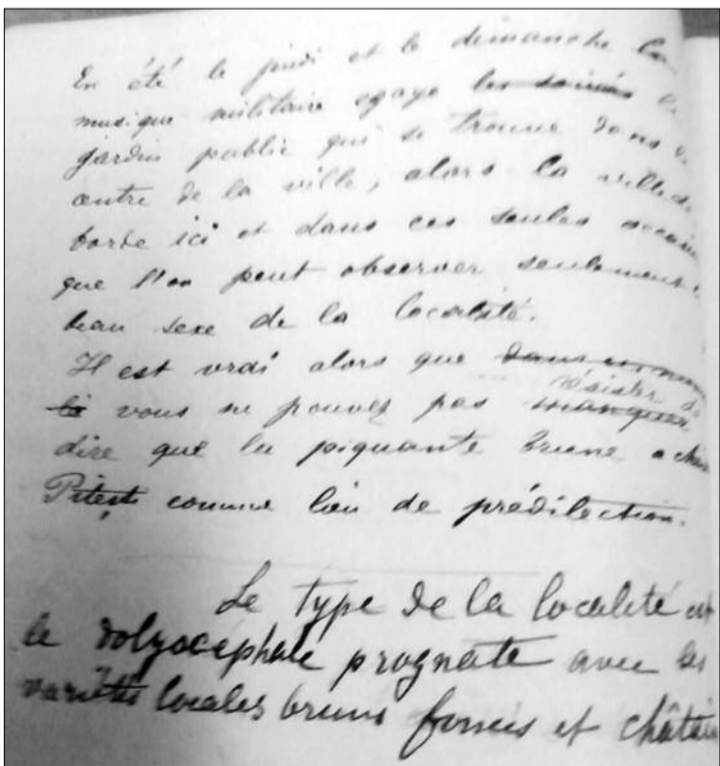 En été le jeudi et le dimanche la
musique militaire egaye les soirées le
jardin public qui se trouve dans le
centre de la ville, alors la ville
borde ici et dans ces seules
que l'on peut observer seulement
beau sexe de la localité.
Il est vrai alors que dans un
résister de
vous ne pouvez pas manquer
dire que la piquante brune a
Pitești comme lieu de prédilection.
Le type de la localité est
le dolyocéphale prognate avec les
variétés locales bruns foncés et châtain